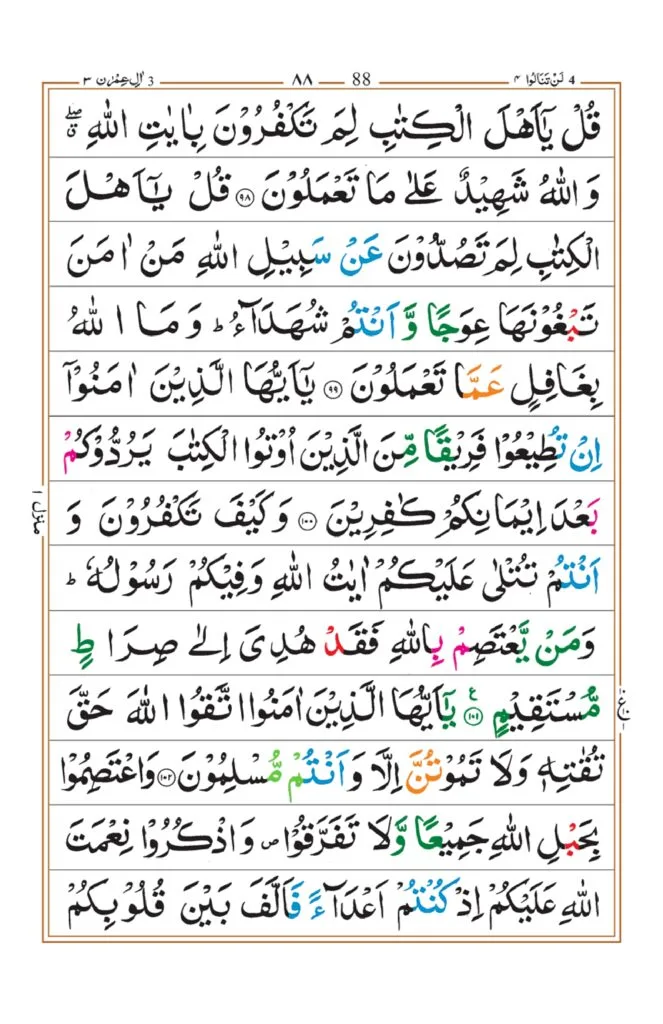 4 لَنْ تَنَالُوا ۴ 88 ۸۸ 3 اٰلِ عِمْرٰن ۳
قُلْ يٰٓاَهْلَ الْكِتٰبِ لِمَ تَكْفُرُوْنَ بِاٰيٰتِ اللّٰهِ ۖۗ
وَ اللّٰهُ شَهِيْدٌ عَلٰى مَا تَعْمَلُوْنَ ﴿۹۸﴾ قُلْ يٰٓاَهْلَ
الْكِتٰبِ لِمَ تَصُدُّوْنَ عَنْ سَبِيْلِ اللّٰهِ مَنْ اٰمَنَ
تَبْغُوْنَهَا عِوَجًا وَّ اَنْتُمْ شُهَدَآءُ ؕ وَ مَا اللّٰهُ
بِغَافِلٍ عَمَّا تَعْمَلُوْنَ ﴿۹۹﴾ يٰٓاَيُّهَا الَّذِيْنَ اٰمَنُوْٓا
اِنْ تُطِيْعُوْا فَرِيْقًا مِّنَ الَّذِيْنَ اُوْتُوا الْكِتٰبَ يَرُدُّوْكُمْ
بَعْدَ اِيْمَانِكُمْ كٰفِرِيْنَ ﴿۱۰۰﴾ وَ كَيْفَ تَكْفُرُوْنَ وَ
منزل ۱
اَنْتُمْ تُتْلٰى عَلَيْكُمْ اٰيٰتُ اللّٰهِ وَ فِيْكُمْ رَسُوْلُهٗ ؕ
وَ مَنْ يَّعْتَصِمْ بِاللّٰهِ فَقَدْ هُدِىَ اِلٰى صِرَاطٍ
مُّسْتَقِيْمٍ ﴿۱۰۱﴾ ع يٰٓاَيُّهَا الَّذِيْنَ اٰمَنُوا اتَّقُوا اللّٰهَ حَقَّ
تُقٰتِهٖ وَلَا تَمُوْتُنَّ اِلَّا وَ اَنْتُمْ مُّسْلِمُوْنَ ﴿۱۰۲﴾ وَاعْتَصِمُوْا
بِحَبْلِ اللّٰهِ جَمِيْعًا وَّلَا تَفَرَّقُوْا ۪ وَ اذْكُرُوْا نِعْمَتَ
اللّٰهِ عَلَيْكُمْ اِذْ كُنْتُمْ اَعْدَآءً فَاَلَّفَ بَيْنَ قُلُوْبِكُمْ